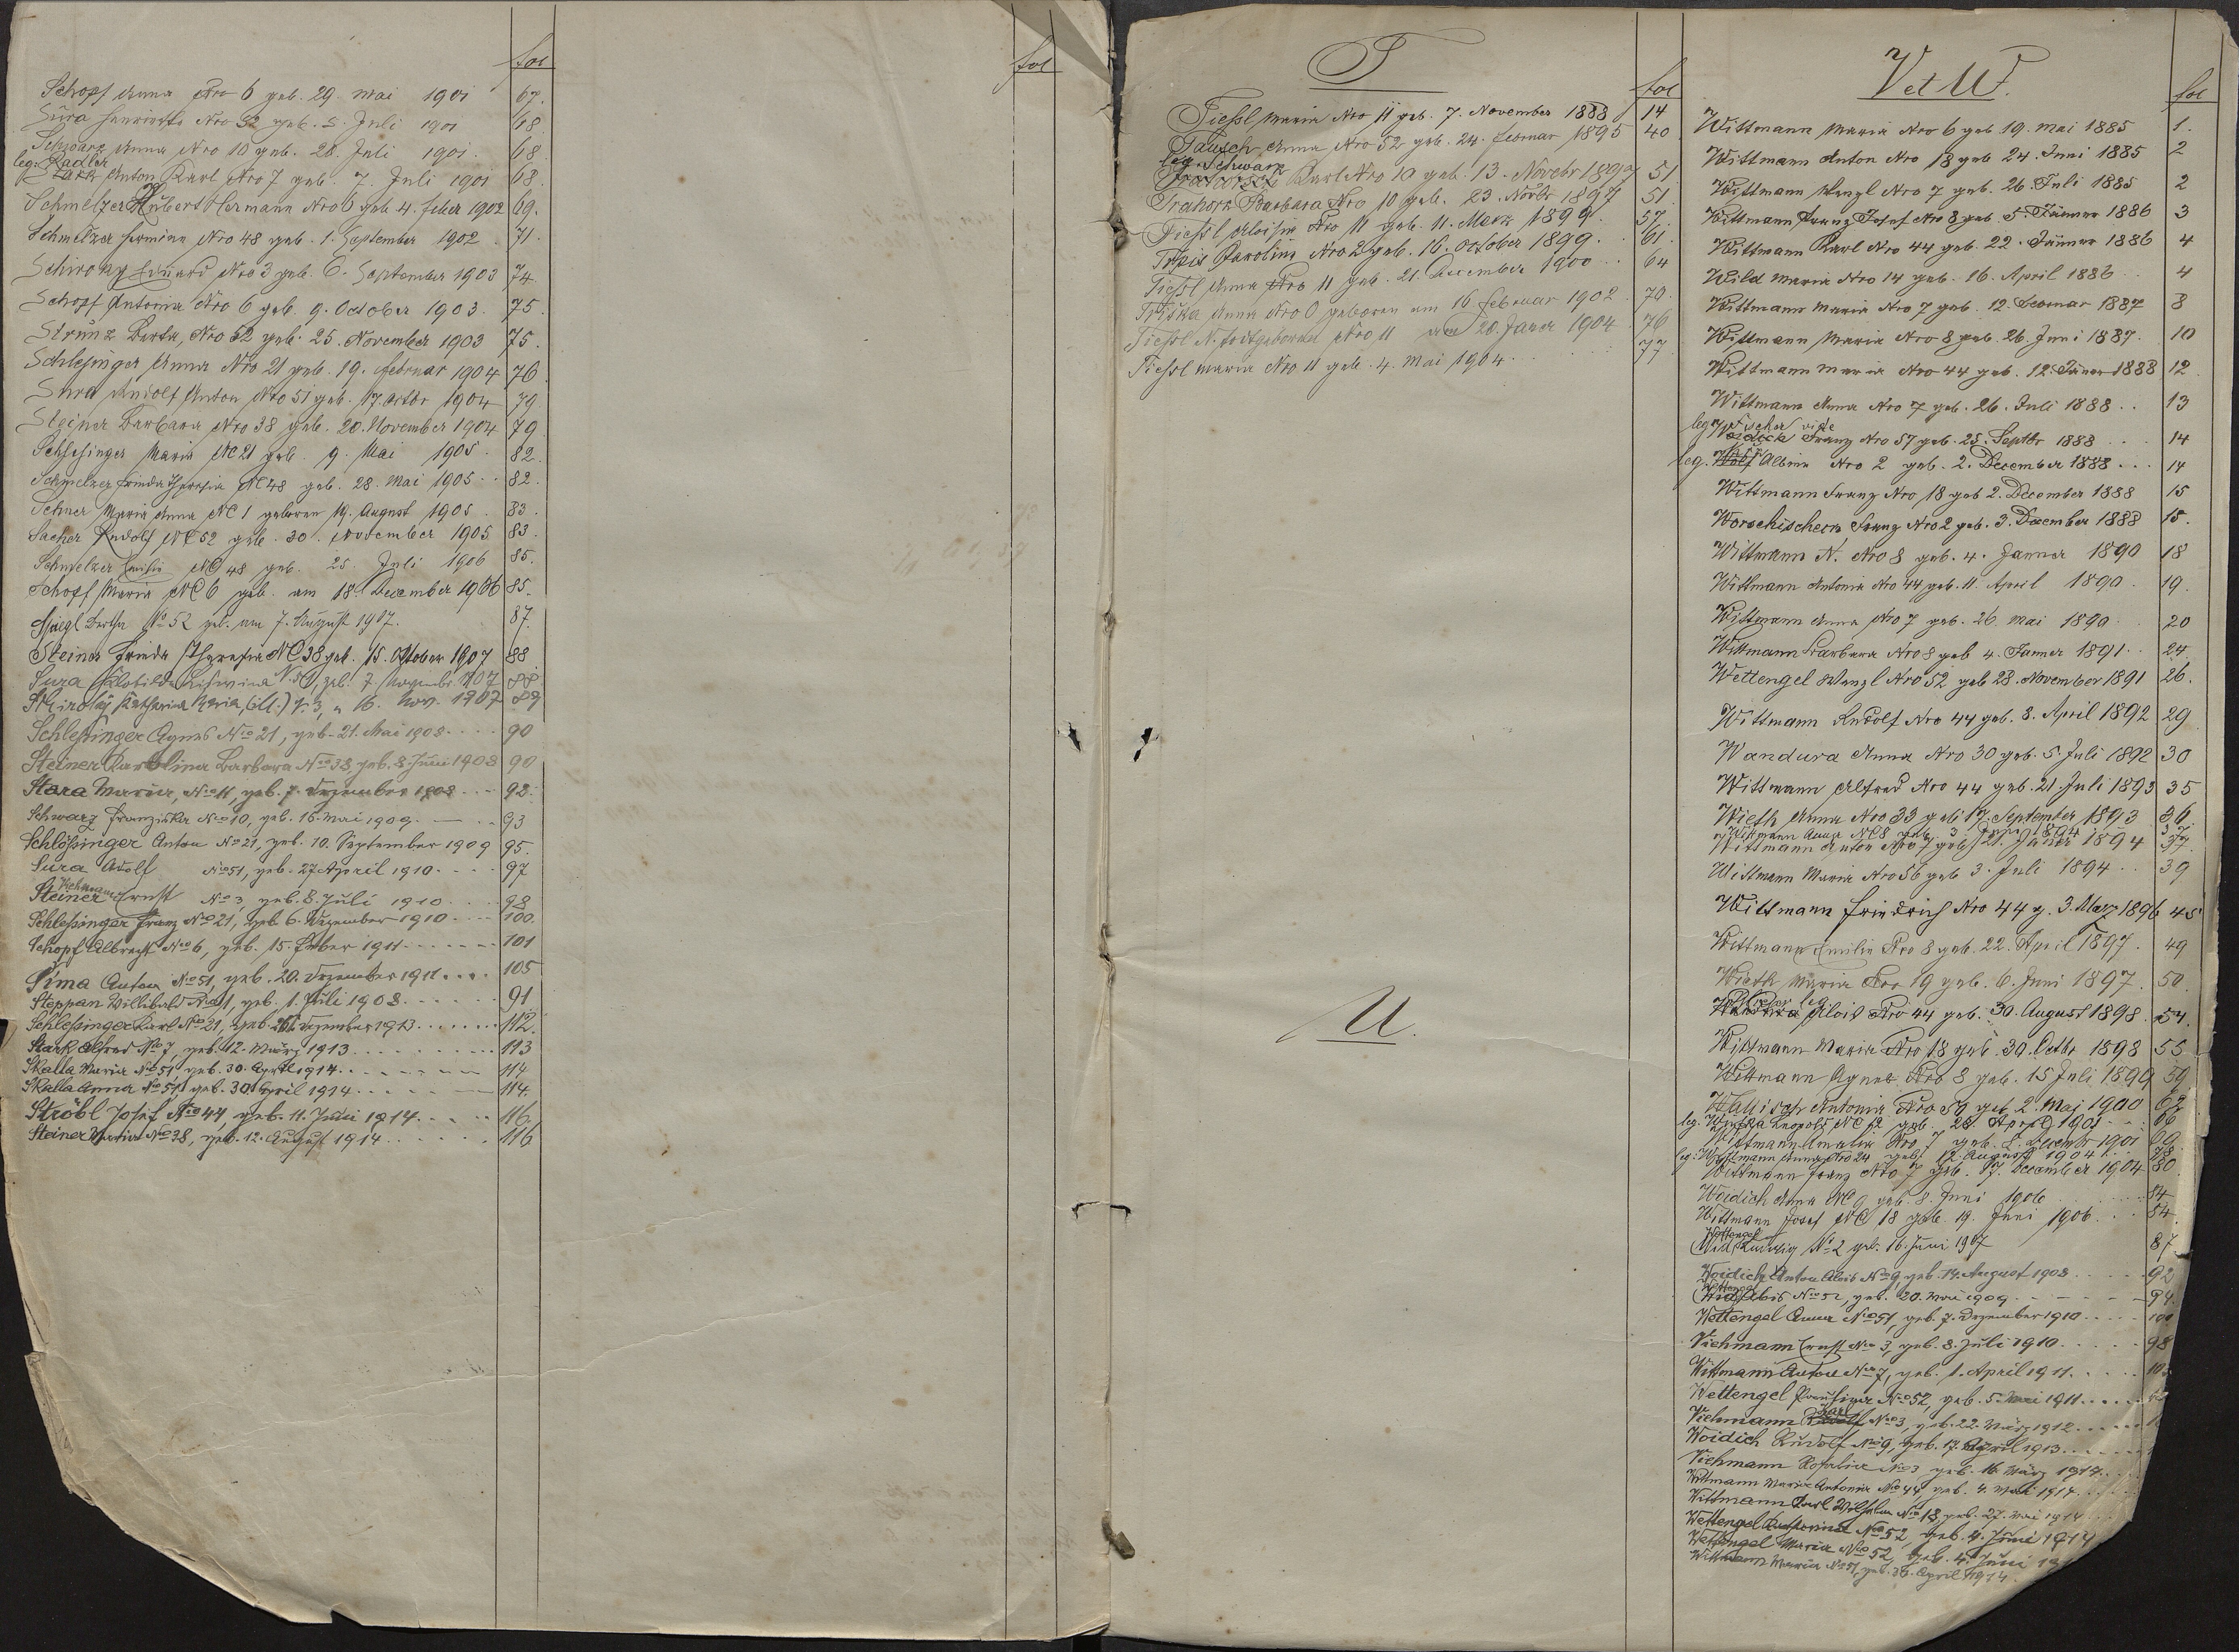 fol
Schopf Anna Nro 6 geb. 29. Mai 1901 67.
Sura Henriette Nro 52 geb. 5. Juli 1901 68
Schwarz Anna Nro 10 geb. 28. Juli 1901. 68
leg. Radler
Anton Karl Nro 7 geb. 7. Juli 1901 68.
Schmelzer Hubert Hermann Nro 6 geb. 4. Feber 1902 69.
Schmelzer Hermine Nro 48 geb. 1. September 1902. 71.
Schirony Eduard Nro 3 geb. 6. September 1903 74.
Schopf Antonia Nro 6 geb. 9. October 1903. 75.
Strunz Berta Nro 52 geb. 25. November 1903 75.
Schlesinger Anna Nro 21 geb. 19. Februar 1904 76
Sura Rudolf Anton Nro 51 geb. 17. Octbr 1904 79
Steiner Barbara Nro 38 geb. 20. November 1904 79
Schlesinger Maria NC 21 geb. 9. Mai 1905. 82.
Schmelzer Frieda Theresia NC 48 geb. 28. Mai 1905 82.
Maria Anna NC 1 geboren 19. August 1905. 83.
Sacher Rudolf NC 52 geb. 30. November 1905 83.
Schmelzer NC 48 geb. 25. Juli 1906 85.
Schopf Maria NC 6 geb. am 18. December 1906 85.
Bertha No 52 geb. am 7. August 1907. 87.
Steiner Frieda Theresia NC 38 geb. 15. Oktober 1907 88
Sura Klotilde geb. 7. 1907 88
Katharina Maria, 3, " 16. Nov. 1907 89
Schlesinger Agnes No 21, geb. 21. Mai 1908 90
Steiner Karolina Barbara No 38, geb. 8. Juni 1908 90
Stara Maria, No 11, geb. 7. Dezember 1908 92.
Schwarz Franziska No 10, geb. 16. Mai 1909. 93
Schlößinger Anton No 21, geb. 10. September 1909 95.
Sura Adolf No 51, geb. 27. April 1910 97
Viehmann
Steiner Ernst No 3, geb. 8. Juli 1910 98
Schlessinger Franz No 21, geb. 6. Dezember 1910 100.
Schopf Albrecht No 6, geb. 15. Feber 1911 101
Sima Anton No 51, geb. 20. Dezember 1911 105
Steppan Willibald No 1, geb. 1. Juli 1908 91
Schlessinger Karl No 21, geb. Dezember 1913 112.
Stark Alfred No 7, geb. 12. März 1913 113
Skalla Maria No 51, geb. 30. April 1914 114
Skalla Anna No 51, geb. 30. April 1914 114.
Ströbl Josef No 44, geb. 11. Juni 1914 116.
Steiner Maria No 38, geb. 12. August 1914 116
fol
T
fol
Tiessl Maria Nro 11 geb. 7. November 1888 14
Tausch Anna Nro 52 geb. 24. Februar 1895 40
leg. Schwarz
Karl Nro 10 geb. 13. Novebr 1897 51
Trahorz Barbara Nro 10 geb. 23. Novbr 1897 51
Tiessl Aloisia Nro 11 geb. 11. Merz 1899. 57.
Karolina Nro 2 geb. 16. October 1899. 61.
Tiessl Anna Nro 11 geb. 21. December 1900 64
Triska Anna Nro 0 geboren am 16. Februar 1902. 70.
Tiessl N. todtgeboren Nro 11 am 20. Janer 1904 76
Tiessl Maria Nro 11 geb. 4. Mai 1904 77
U.
V et W.
fol
Wittmann Maria Nro 6 geb 19. Mai 1885 1.
Wittmann Anton Nro 18 geb 24. Juni 1885 2
Wittmann Wenzl Nro 7 geb. 26. Juli 1885 2
Wittmann Franz Josef Nro 8 geb. 5. Jänner 1886 3
Wittmann Karl Nro 44 geb. 22. Jänner 1886 4
Wild Maria Nro 14 geb. 16. April 1886 4
Wittmann Maria Nro 7 geb. 12. Februar 1887 8
Wittmann Maria Nro 8 geb. 26. Juni 1887. 10
Wittmann Maria Nro 44 geb. 12. Jäner 1888 12
Wittmann Anna Nro 7 geb. 26. Juli 1888 13
leg.
Woidich Franz Nro 57 geb. 25. Septbr 1888 14
leg. Wolf Albina Nro 2 geb. 2. December 1888 14
Wittmann Franz Nro 18 geb 2. December 1888 15
Worschischeck Franz Nro 2 geb. 3. December 1888 15.
Wittmann N. Nro 8 geb. 4. Janner 1890 18
Wittmann Antonia Nro 44 geb. 11. April 1890. 19.
Wittmann Anna Nro 7 geb. 26. Mai 1890. 20
Wittmann Barbara Nro 8 geb 4. Janner 1891 24
Wettengel Wenzl Nro 52 geb 28. November 1891 26.
Wittmann Rudolf Nro 44 geb. 8. April 1892 29
Wandura Anna Nro 30 geb. 5. Juli 1892 30
Wittmann Alfred Nro 44 geb. 21. Juli 1893 35
Wieth Anna Nro 33 geb. 17. September 1893 36
Wittmann NC 8 geb. 3. 1894 37
Wittmann Anton Nro 7 geb. 21. Jäner 1894 37.
Wittmann Maria Nro 56 geb 3. Juli 1894 39
Wittmann Friedrich Nro 44 g. 3. März 1896 45
Wittmann Emilie Nro 8 geb. 22. April 1897. 49
Wieth Maria Nro 19 geb. 6. Juni 1897. 50.
leg
Alois Nro 44 geb. 30. August 1898. 54.
Wittmann Maria Nro 18 geb. 30. Octbr 1898 55
Wittmann Agnes Nro 8 geb. 15. Juli 1899 59
Wallisch Antonia Nro 59 geb 2. Mai 1900 62
leg. Leopold NC 52 geb. 28. April 1901 66
Wittmann Amalia Nro 7 geb. 8. Decembr 1901 69
leg. Wittmann Anna Nro 24 geb. 12. August 1904 78
Wittmann Franz Nro 7 geb. 17. December 1904 80
Woidich Anna NC 9 geb. 8. Juni 1906 84
Wittmann Josef NC 18 geb. 19. Juni 1906 84.
Wettengel
Wild Ludwig No 2 geb. 16. Juni 1907 87
Woidich Anton Alois No 9, geb. 14. August 1908 92
Wettengel
Wild Alois No 52, geb. 20. Mai 1909 94.
Wettengel Anna No 51, geb. 7. Dezember 1910 100
Viehmann Ernst No 3, geb. 8. Juli 1910 98
Wittmann Anton No 7, geb. 1. April 1911
Wettengel No 52, geb. 5. Mai 1911
Karl
Viehmann Rudolf No 3, geb. 22. März 1912
Woidich Rudolf No 9, geb. 17. April 1913
Viehmann Rosalia No 3 geb. 16. März 1914
Wittmann Maria Antonia No 44, geb. 4. Mai 1914
Wittmann Karl Wilhelm No 18, geb. 27. Mai 1914
Wettengel Katharina No 52, geb. 4. Juni 1914
Wettengel Maria No 52, geb. 4. Juni 19
Wittmann Maria No 51, geb. 30. April 1914.